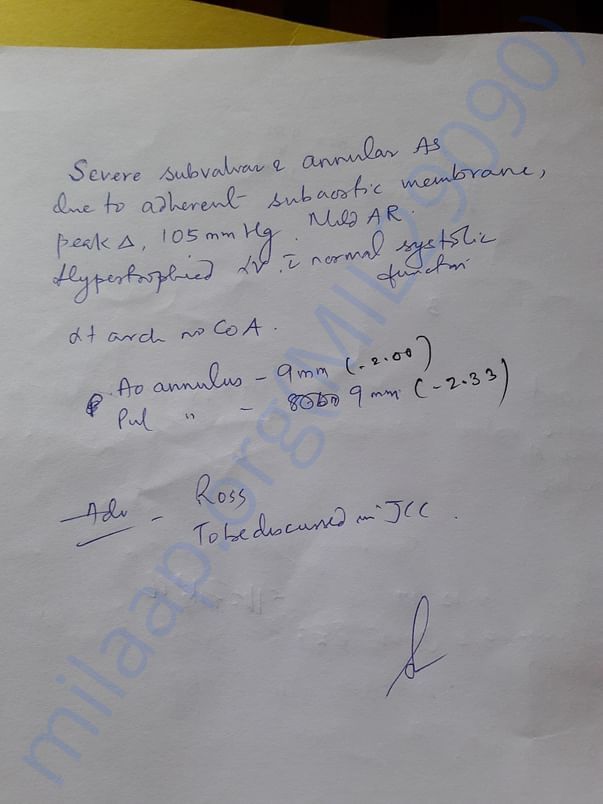 Severe subvalvar & annular AS
due to adherent subaortic membrane,
peak Δ, 105 mm Hg. Mild AR.
Hypertrophied LV c̄ normal systolic
function
Lt arch no CoA.
Ao annulus - 9mm (-2.00)
Pul " - 9 mm (-2.33)
Adv - Ross
To be discussed in JCC.
milaap.org(MIL79090)